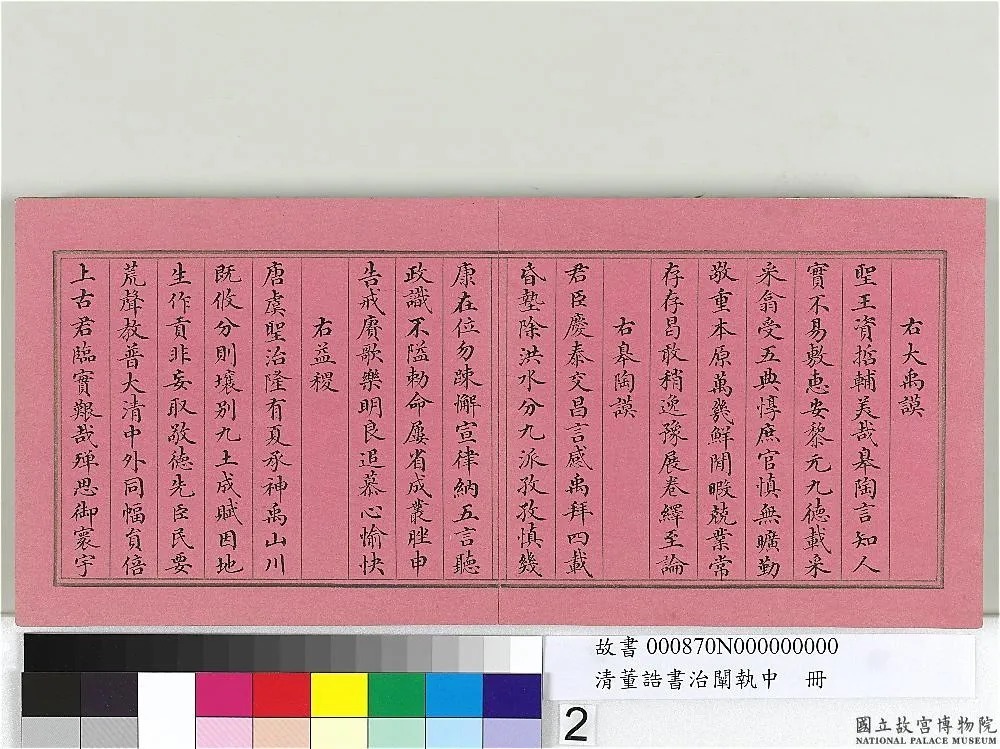 右大禹謨
聖王資哲輔美哉皋陶言知人
實不易敷惠安黎元九德載采
采翕受五典惇庶官慎無曠勤
敬重本原萬幾鮮閒暇兢業常
存存昌敢稍逸豫展卷繹至論
右皋陶謨
君臣慶泰交昌言感禹拜四載
昏墊除洪水分九派孜孜慎幾
康在位勿疎懈宣律納五言聽
政識不隘勅命屢省成叢脞申
告戒賡歌樂明良追慕心愉快
右益稷
唐虞聖治隆有夏承神禹山川
既攸分則壤別九土成賦因地
生作貢非妄取敬德先臣民要
荒聲教普大清中外同幅員倍
上古君臨實艱哉殫思御寰宇
故書 000870N000000000
清董誥書治闡執中 冊
2
國立故宮博物院
NATIONAL PALACE MUSEUM